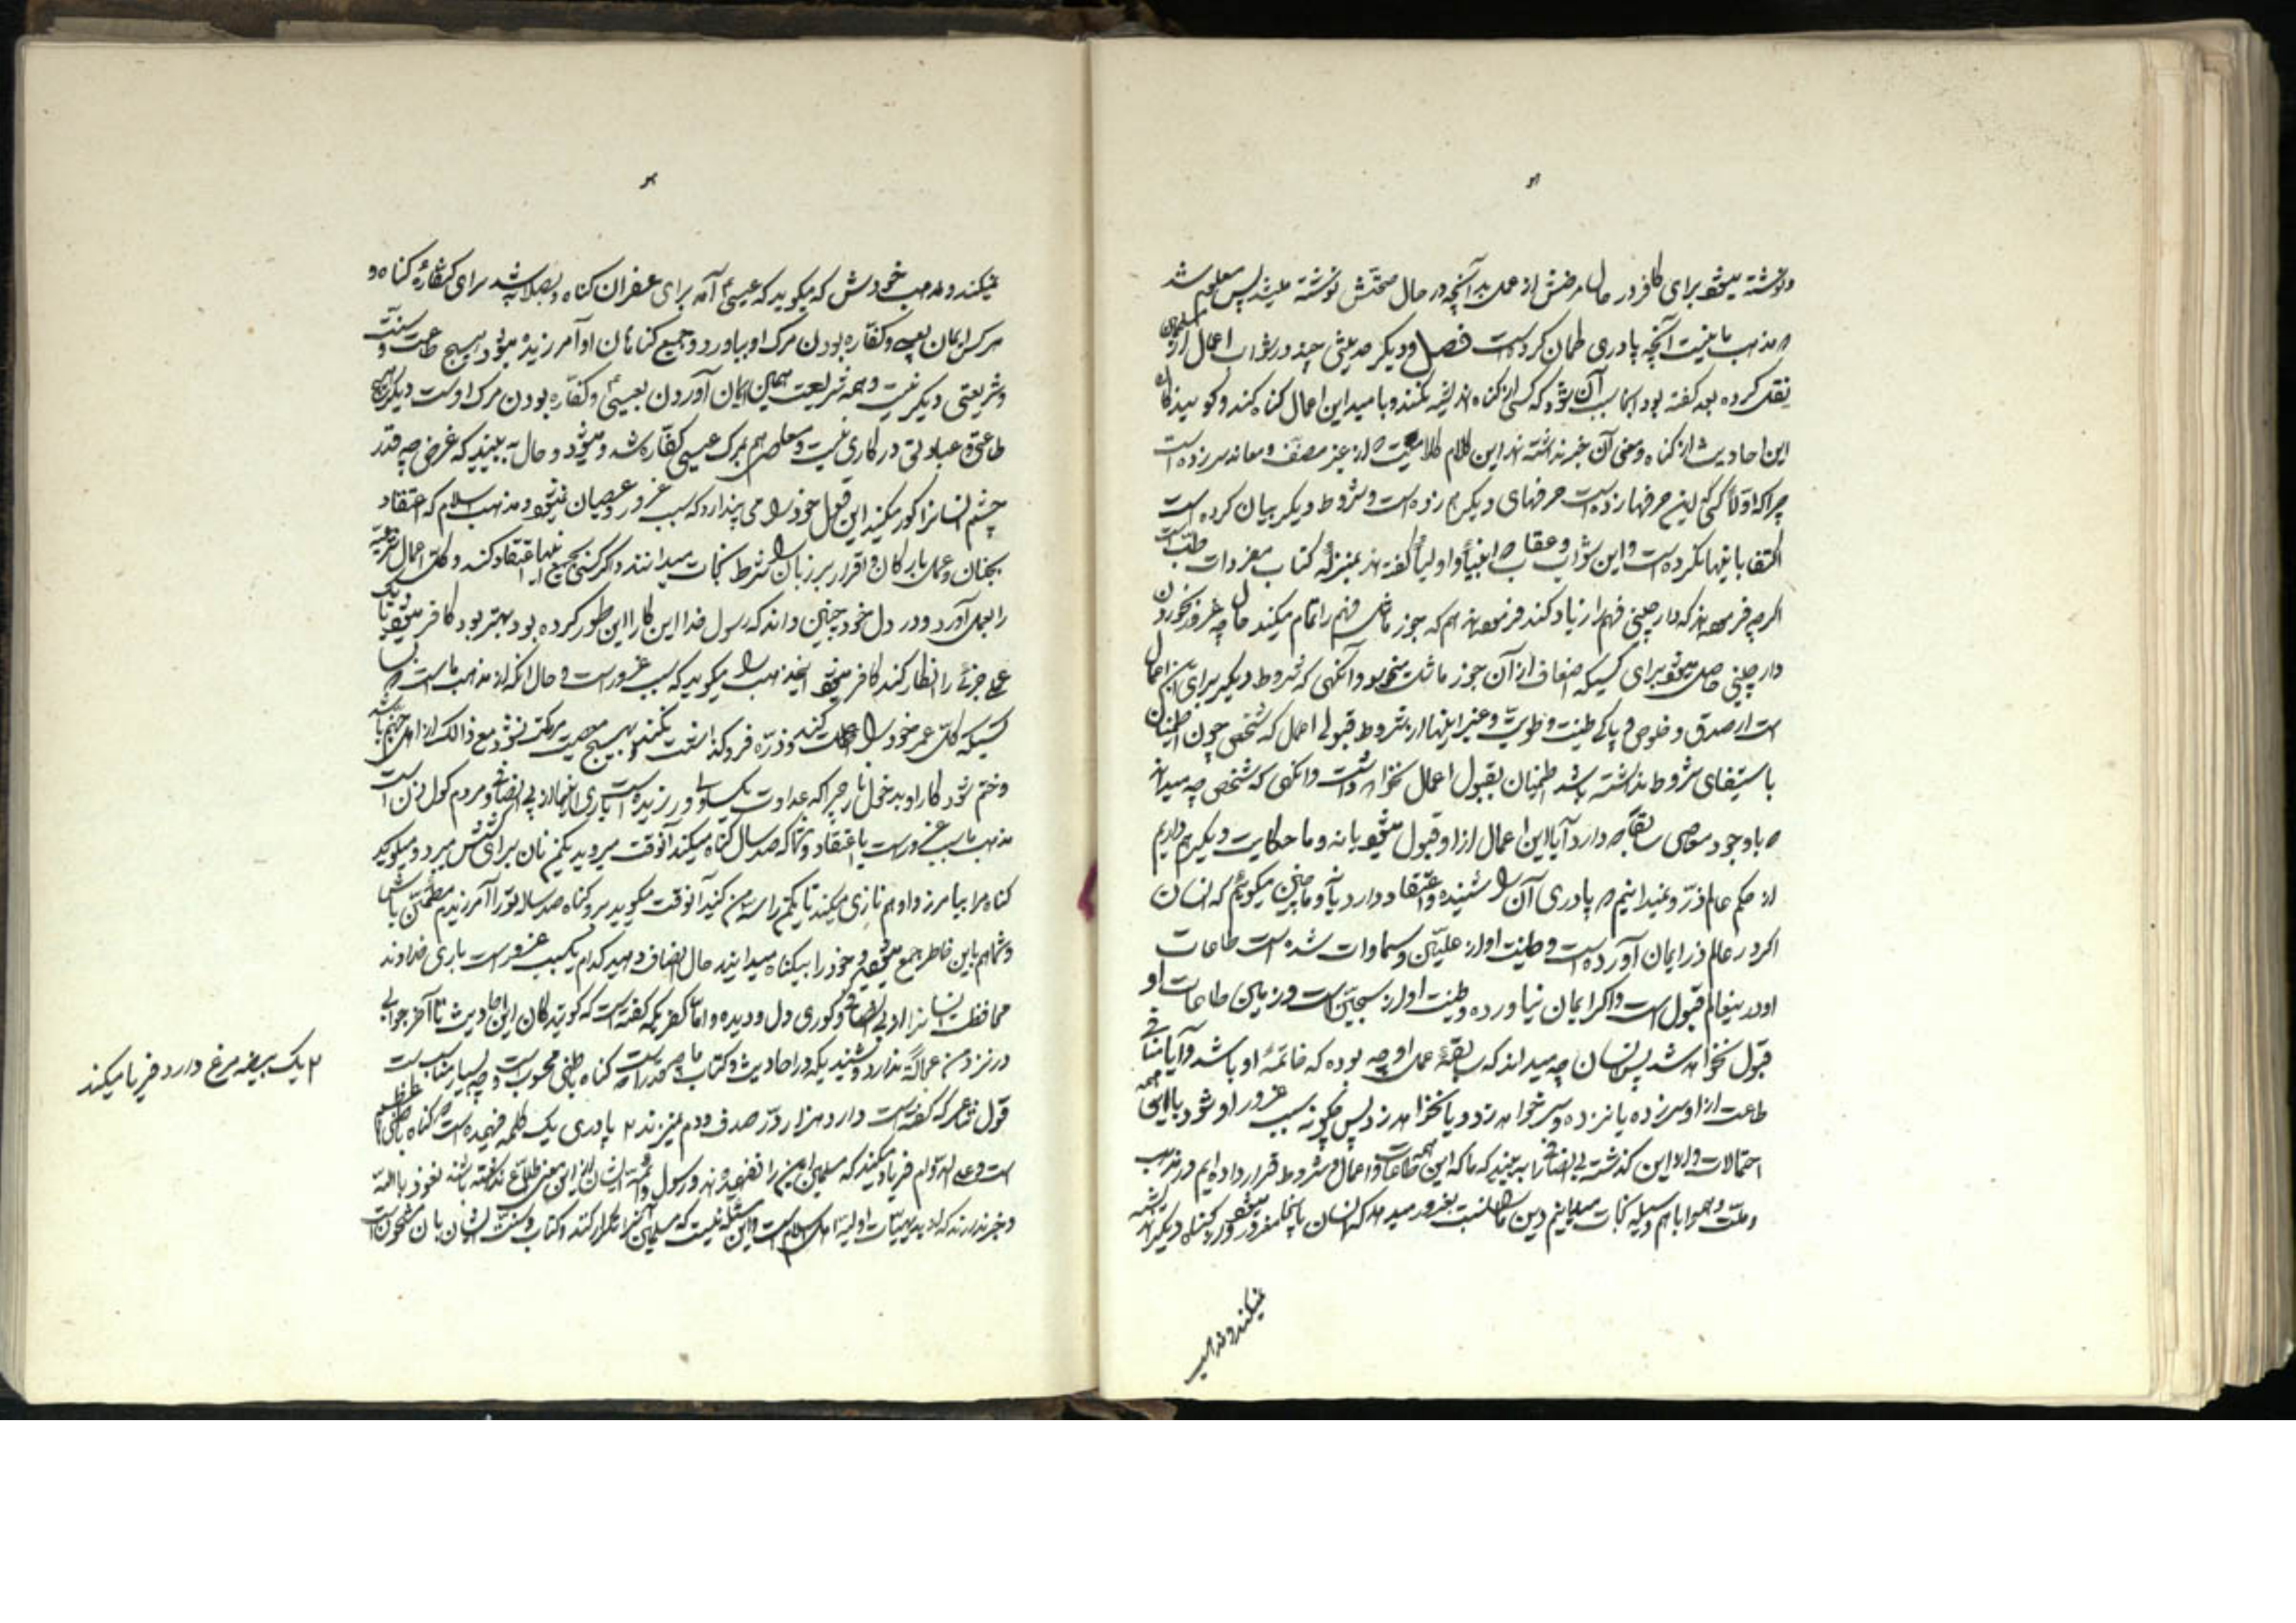 ونوشته میشود برای کافر در حال مرضش از عمل بد آنچه در حال صحتش نوشته میشد پس معلوم شد
که مذهب ما نیست آنچه پادری گمان کرده است فصل و دیگر حدیثی چند در ثواب اعمال از مسلمانان
نقل کرده بعد گفته بود اسباب آن شود که کسی از گناه اندیشه نکند و بامید این اعمال گناه کند و گویندگان
این احادیث از گناه و معنی آن خبر نداشته اند این کلام کلامیست که از غیر منصف و معاند سر زده است
چرا که اولا کسی که این حرفها زده است حرفهای دیگر هم زده است و شروط دیگر بیان کرده است
اکتفا باینها نکرده است و این ثواب و عقاب که انبیا و اولیا گفته اند بمنزله کتاب مفردات طب است
اگرچه فرموده اند که دارچینی فهم را زیاد کند فرموده اند هم که جوز ماثل فهم را تمام میکند حال چه غرور بخوردن
دارچینی حاصل میشود برای کسیکه اضعاف از آن جوز ماثل میخورد وانگهی که شروط دیگر برای این اعمال
است از صدق و خلوص و پاکی طینت و طویت و غیر اینها از شروط قبولی اعمال که شخص چون اطمینان
باستیفای شروط نداشته باشد اطمینان بقبول اعمال نخواهد داشت وانگهی که شخص چه میداند
که باوجود معاصی سابقه که دارد آیا این اعمال از او قبول میشود یا نه و ما حکایت دیگر هم داریم
از حکم عالم ذر و نمیدانیم که پادری آن را شنیده و اعتقاد دارد یا نه و ما چنین میگوئیم که انسان
اگر در عالم ذر ایمان آورده است و طینت او از علیین و سماوات شده است طاعات
او در اینعالم قبول است و اگر ایمان نیاورده و طینت او از سجین است و زمین طاعات او
قبول نخواهد شد پس انسان چه میداند که سابقه عمل او چه بوده که خاتمه او باشد و آیا منافی
طاعت از او سر زده یا نزده و سر خواهد زد و یا نخواهد زد پس چگونه سبب غرور او شود با این همه
احتمالات و از این گذشته بی انصافی را ببینید که ما که این همه طاعات و اعمال و شروط قرار داده ایم در مذهب
و ملت و همه را با هم وسیله نجات میدانیم دین ما را نسبت بغرور میدهد که انسان باینها مغرور میشود و از گناه دیگر اندیشه
نمیکند و مذهب
نمیکند و مذهب خودش که میگوید که عیسی آمد برای غفران گناه و بصلابه شد برای کفاره گناه و
هرکس ایمان بعیسی و کفاره بودن مرگ او بیاورد جمیع گناهان او آمرزیده میشود و هیچ طاعت و سنت
و شریعتی دیگر نیست و همه شریعت همین ایمان آوردن بعیسی و کفاره بودن مرگ اوست دیگر هیچ
طاعتی و عبادتی در کاری نیست و معاصی هم بمرگ عیسی کفاره شد و میشود و حال ببینید که غرض چه قدر
چشم انسانرا کور میکند این قول خود را می پندارد که سبب غرور و عصیان نمیشود و مذهب اسلام که اعتقاد
بجنان و عمل بارکان و اقرار بزبان را شرط نجات میدانند و اگر کسی بجمیع اینها اعتقاد کند و کل اعمال شرعیه
را بعمل آورد و در دل خود چنین داند که رسول خدا این کار را این طور کرده بود بهتر بود کافر میشود تا
عمل جزئی را انکار کند کافر میشود این مذهب را میگوید که سبب غرور است و حال آنکه از مذهب ماست که
کسیکه کل عمر خود را طاعت کند و ذره فروگذاشت نکند و بهیچ معصیت مرتکب نشود مع ذالک از اهل جهنم باشد
و ختم شود کار او بدخول نار چرا که عداوت یکی از اولیا ورزیده است باری اینها از بی انصافی و مردم گول زدن است
مذهب ما سبب غرور است یا اعتقاد شما که صد سال گناه میکند آنوقت میرود یکمن نان برای کشیش میبرد و میگوید
گناه مرا بیامرز و او هم نازی میکند تا یکمن را سه من کنید آنوقت میگوید برو گناه صد ساله تو را آمرزیدم مطمئن باش
و شما هم باین خاطر جمع میشوید و خود را بیگناه میدانید حال انصاف دهید کدام یک سبب غرور است باری خداوند
محافظت نماید انسانرا از بی انصافی و کوری دل و دیده و اما کفریکه گفته است که گویندگان این احادیث تا آخر جوابی
در نزد من عجالة ندارد و نشنیدیکه در احادیث و کتاب ما چه قدر است که گناه باطنی محسوب است و چه بسیار مناسبست
قول شاعر که گفته است دارد هزار در صدف و دم نمیزند ۲ پادری یک کلمه فهمیده است که گناه باطنی عظیم
است و علی الدوام فریاد میکند که مسلمین این را نفهمیده اند و رسول و ائمه ایشان از این معنی اطلاع نداشته باشند نعوذ بالله
و خبر ندارند که از بدیهیات اولیه اهل اسلام است و این مسئله نیست که مسلمین آنرا انکار کنند و کتاب و سنت ایشان بآن مشحونست
۲ یک بیضه مرغ دارد و فریاد میکند